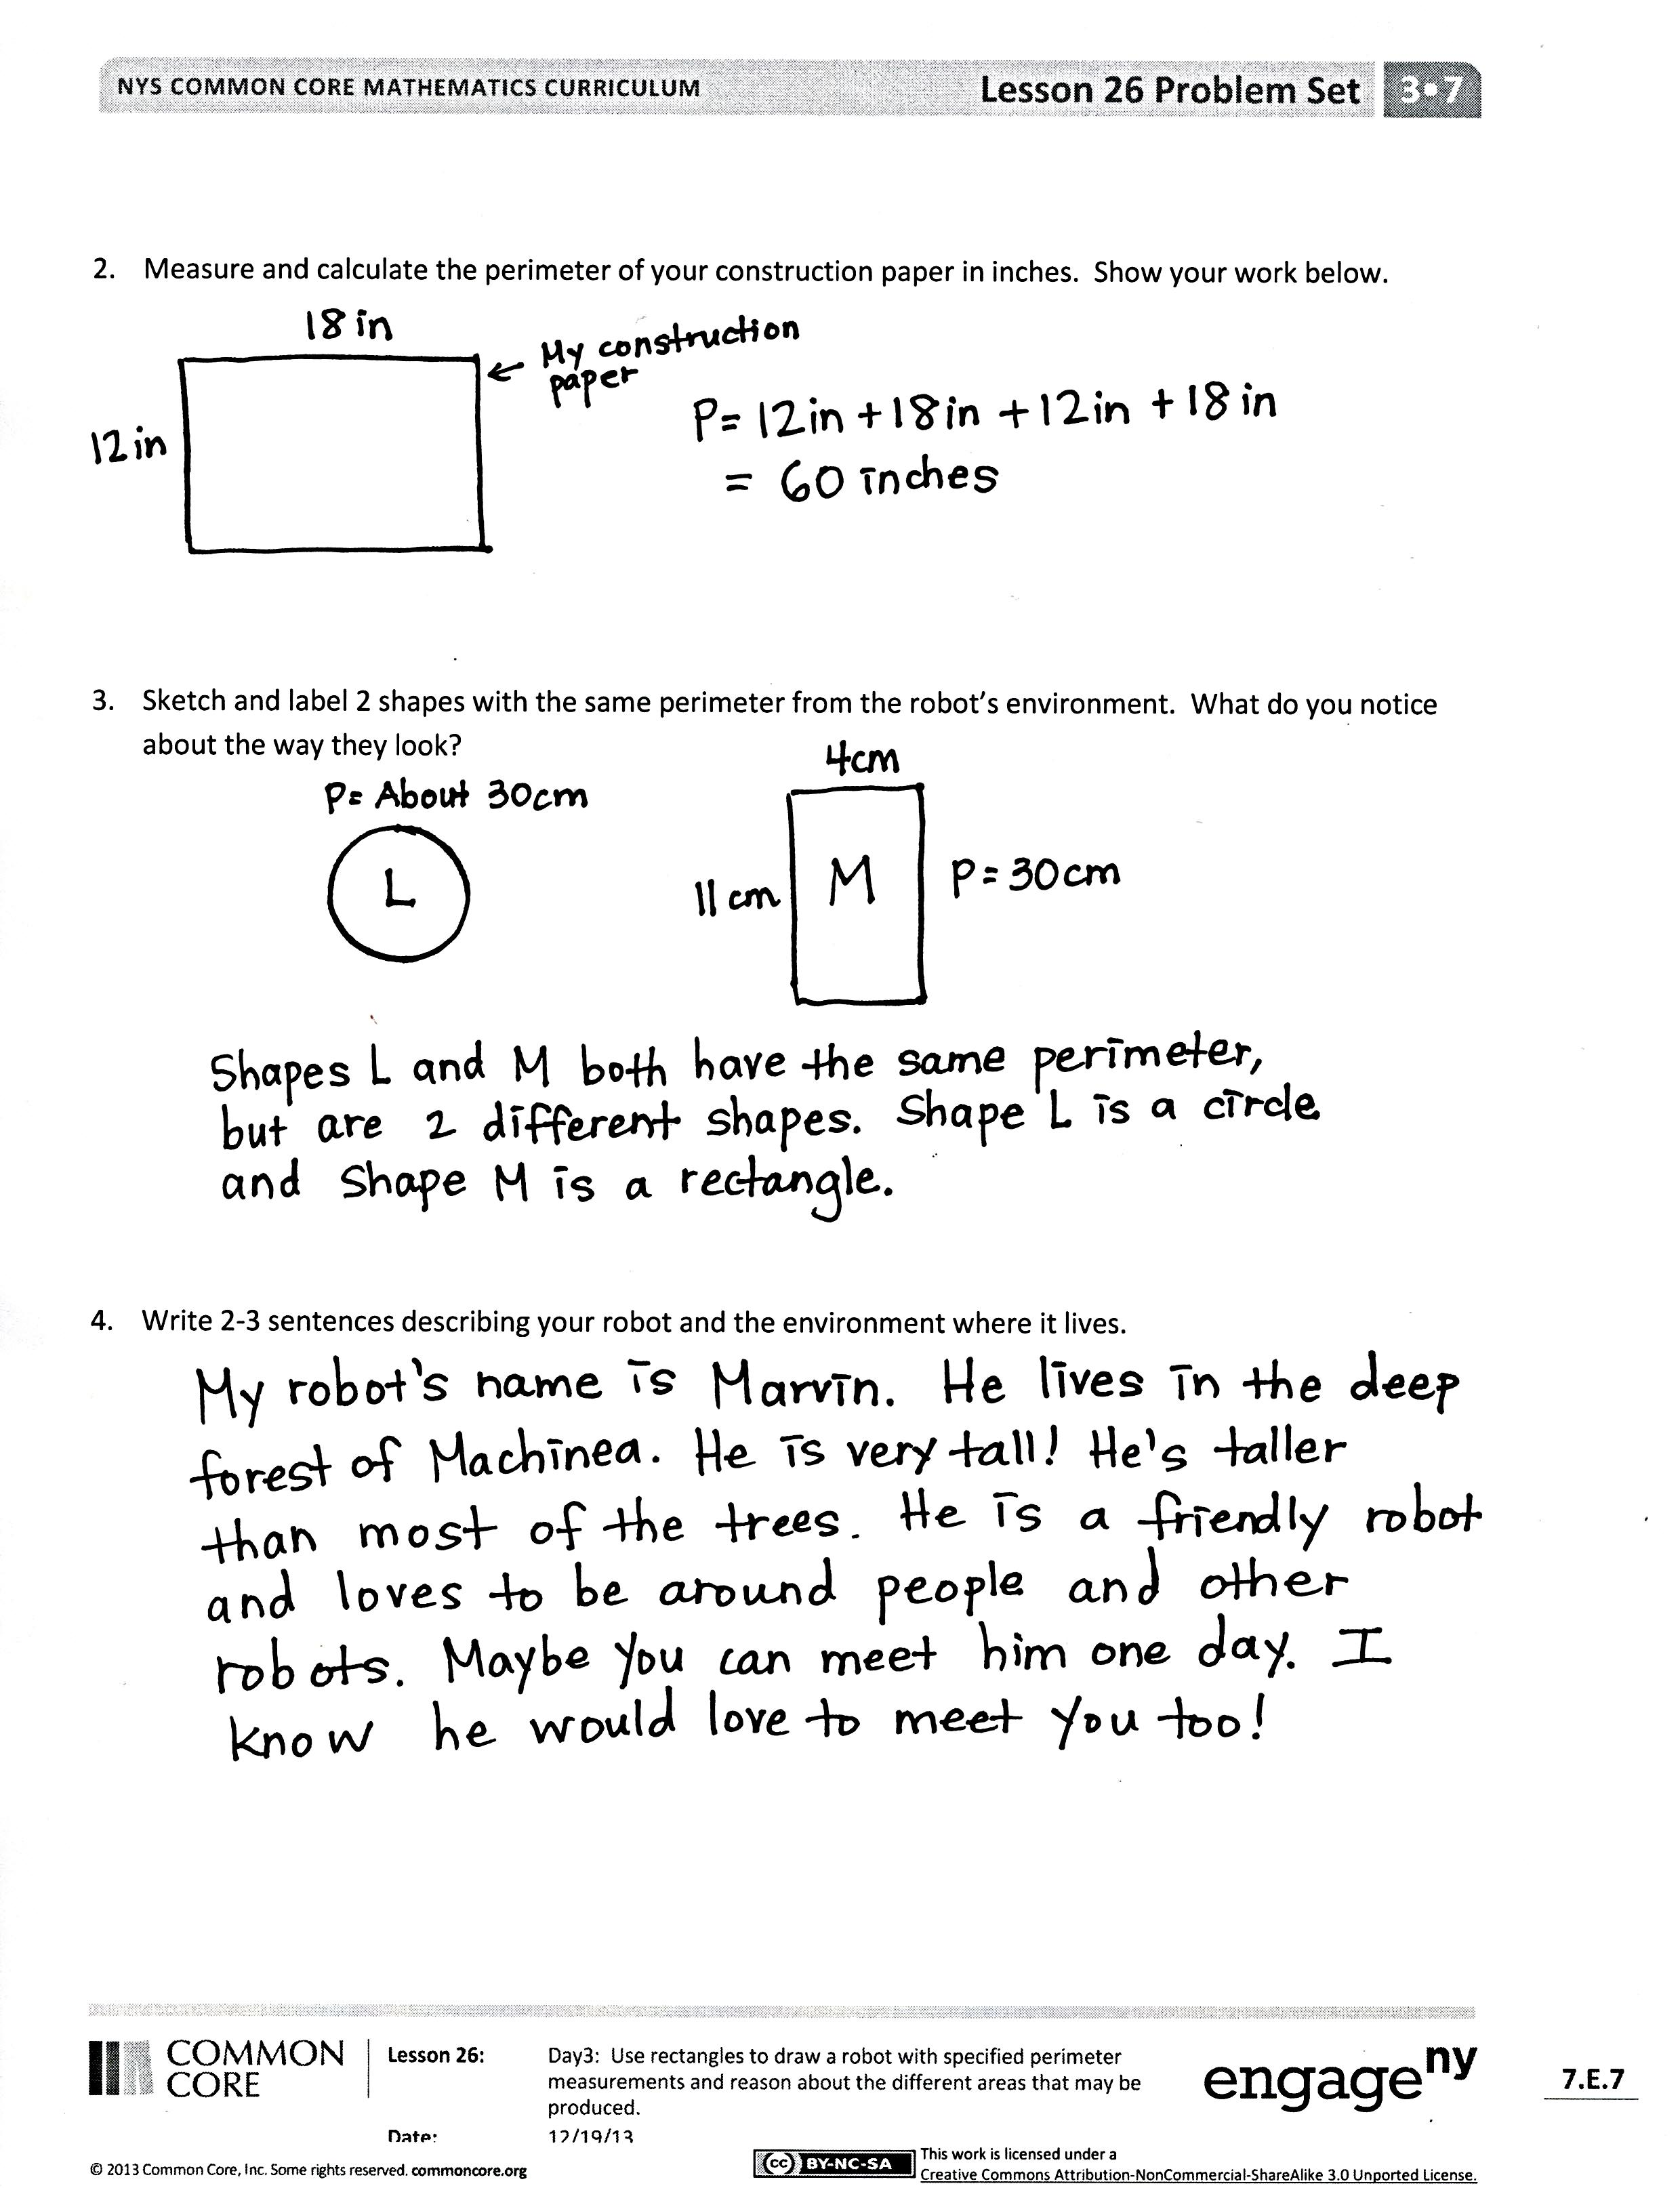 NYS COMMON CORE MATHEMATICS CURRICULUM Lesson 26 Problem Set 3•7
2. Measure and calculate the perimeter of your construction paper in inches. Show your work below.
18 in
← My construction
paper
12 in
P= 12in + 18in + 12in + 18in
= 60 inches
3. Sketch and label 2 shapes with the same perimeter from the robot's environment. What do you notice
about the way they look?
P= About 30cm
L
4cm
11 cm
M
P= 30cm
Shapes L and M both have the same perimeter,
but are 2 different shapes. Shape L is a circle
and Shape M is a rectangle.
4. Write 2-3 sentences describing your robot and the environment where it lives.
My robot's name is Marvin. He lives in the deep
forest of Machinea. He is very tall! He's taller
than most of the trees. He is a friendly robot
and loves to be around people and other
robots. Maybe you can meet him one day. I
know he would love to meet you too!
COMMON
CORE
Lesson 26:
Day3: Use rectangles to draw a robot with specified perimeter
measurements and reason about the different areas that may be
produced.
Date: 12/19/13
engage ny
7.E.7
© 2013 Common Core, Inc. Some rights reserved. commoncore.org
cc BY-NC-SA
This work is licensed under a
Creative Commons Attribution-NonCommercial-ShareAlike 3.0 Unported License.